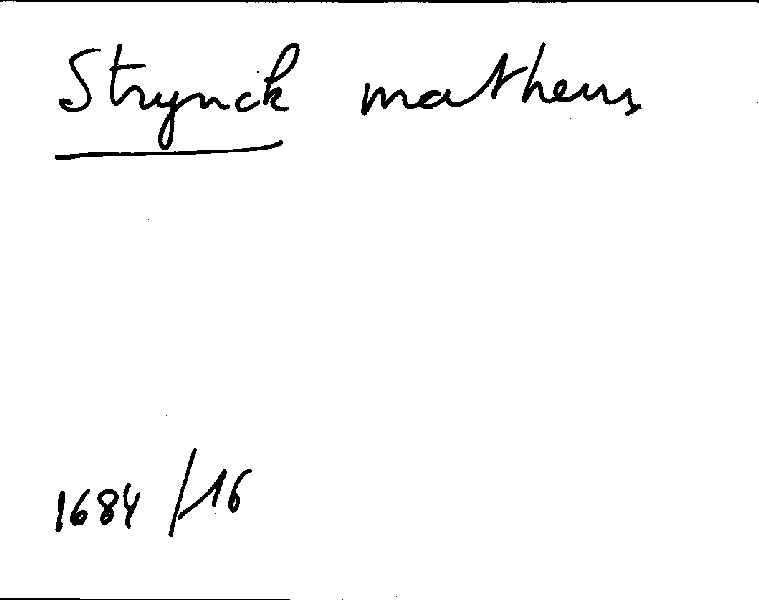 Strynck matheus
1684/16